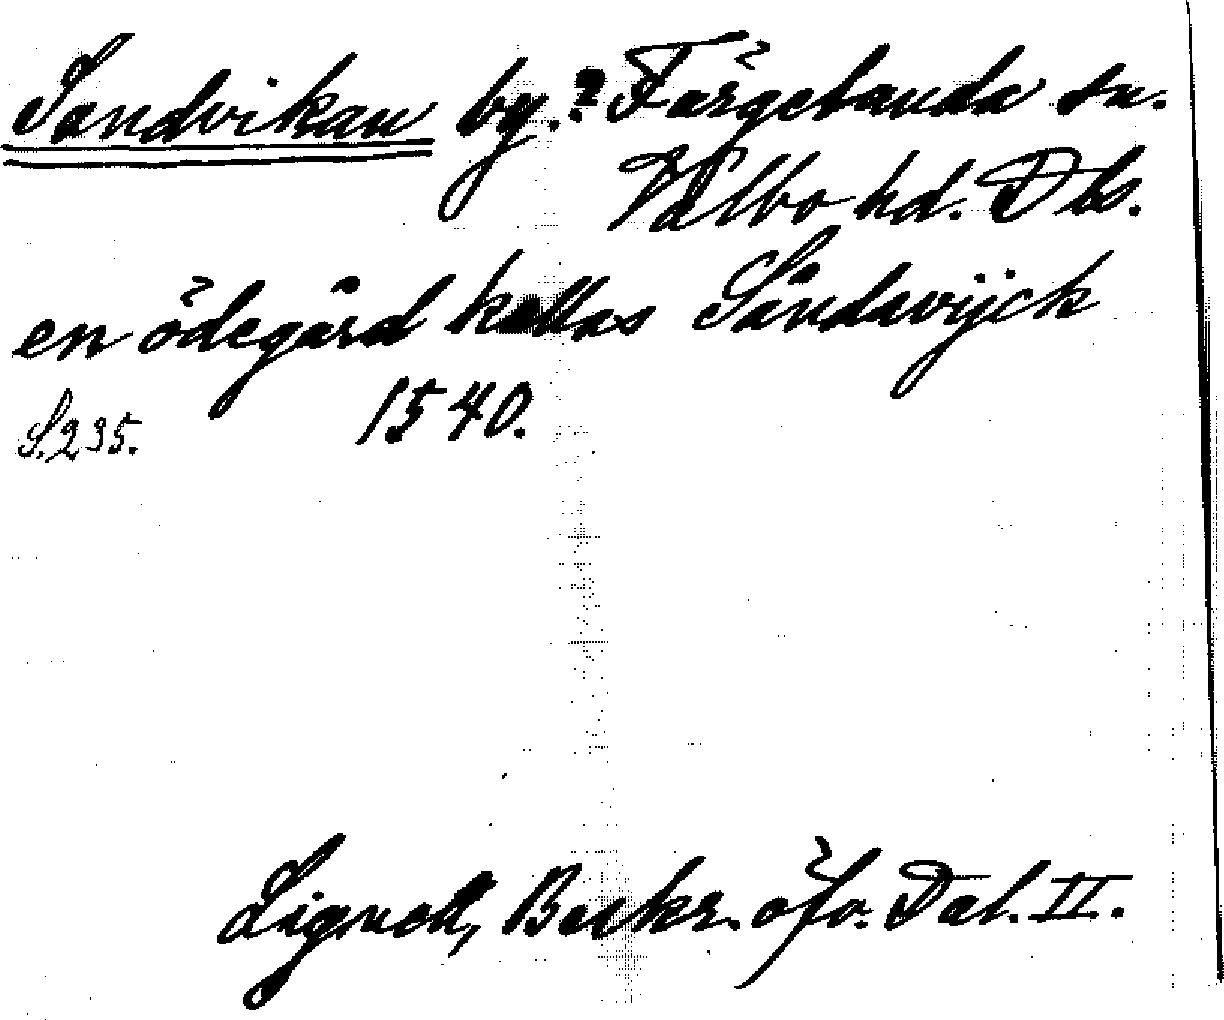 Sandvikan by.? Färgelanda sn.
Valbo hd. Dls.
en ödegård kallas Sandavijck
S. 235. 1540.
Lignell, Beskr. öfv. Dal. II.